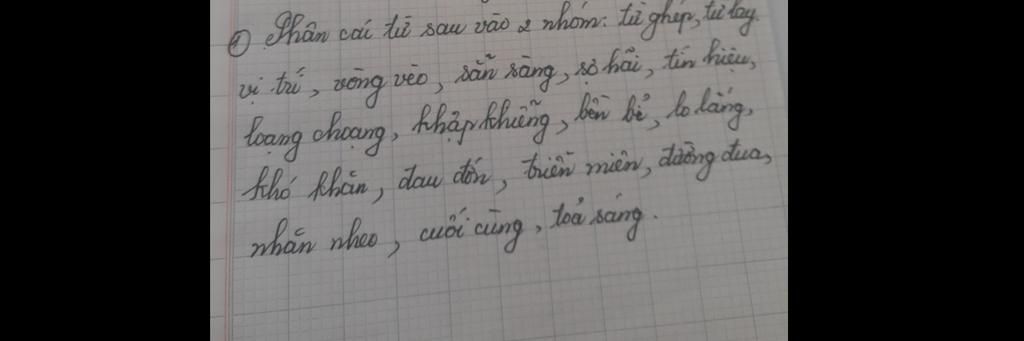 ① Phân cái từ sau vào 2 nhóm: từ ghép, từ láy.
vị trí, vòng vèo, sẵn sàng, sợ hãi, tín hiệu,
loạng choạng, khập khiễng, bền bỉ, lo lắng,
khó khăn, đau đớn, triền miên, đường đua,
nhăn nheo, cuối cùng, toả sáng.